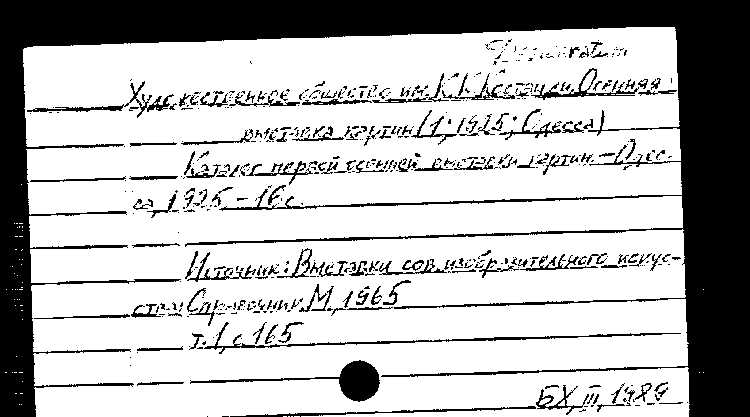 Desideratum
Художественное общество им. К.К.Костанди. Осенняя
выставка картин (1; 1925; Одесса)
Каталог первой осенней выставки картин. – Одес-
са, 1925. – 16 с.
Источник: Выставки сов. изобразительного искус-
ства: Справочник. М., 1965
т. 1, с. 165
БХ, III, 1989